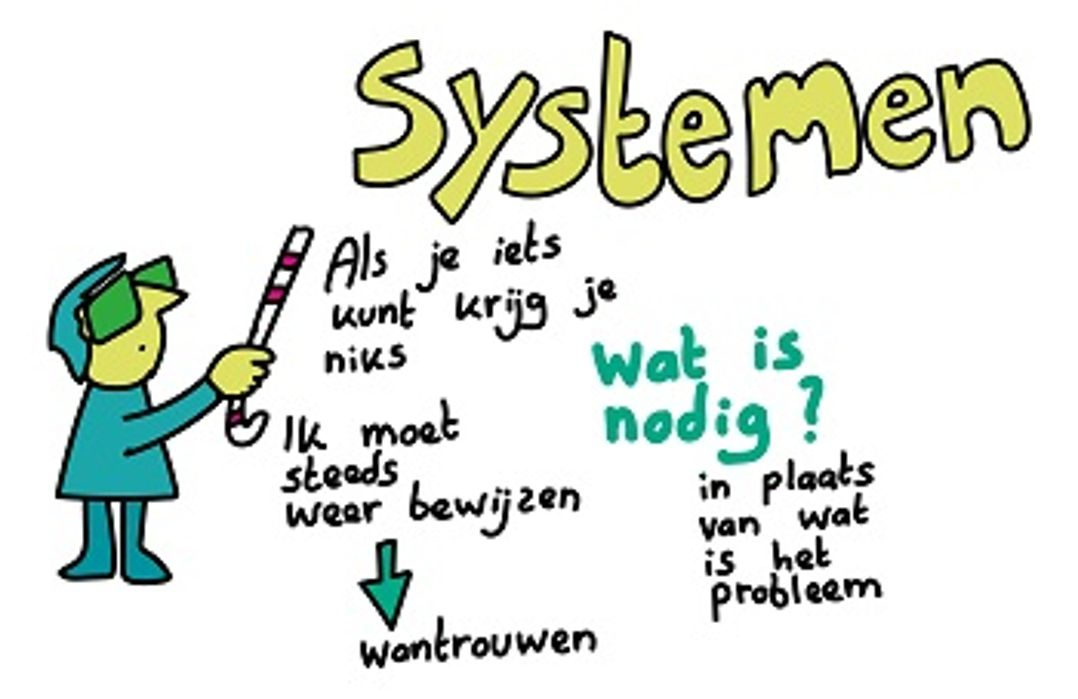 Systemen
Als je iets
kunt krijg je
niks
Ik moet
steeds
weer bewijzen
wantrouwen
Wat is
nodig?
in plaats
van wat
is het
probleem